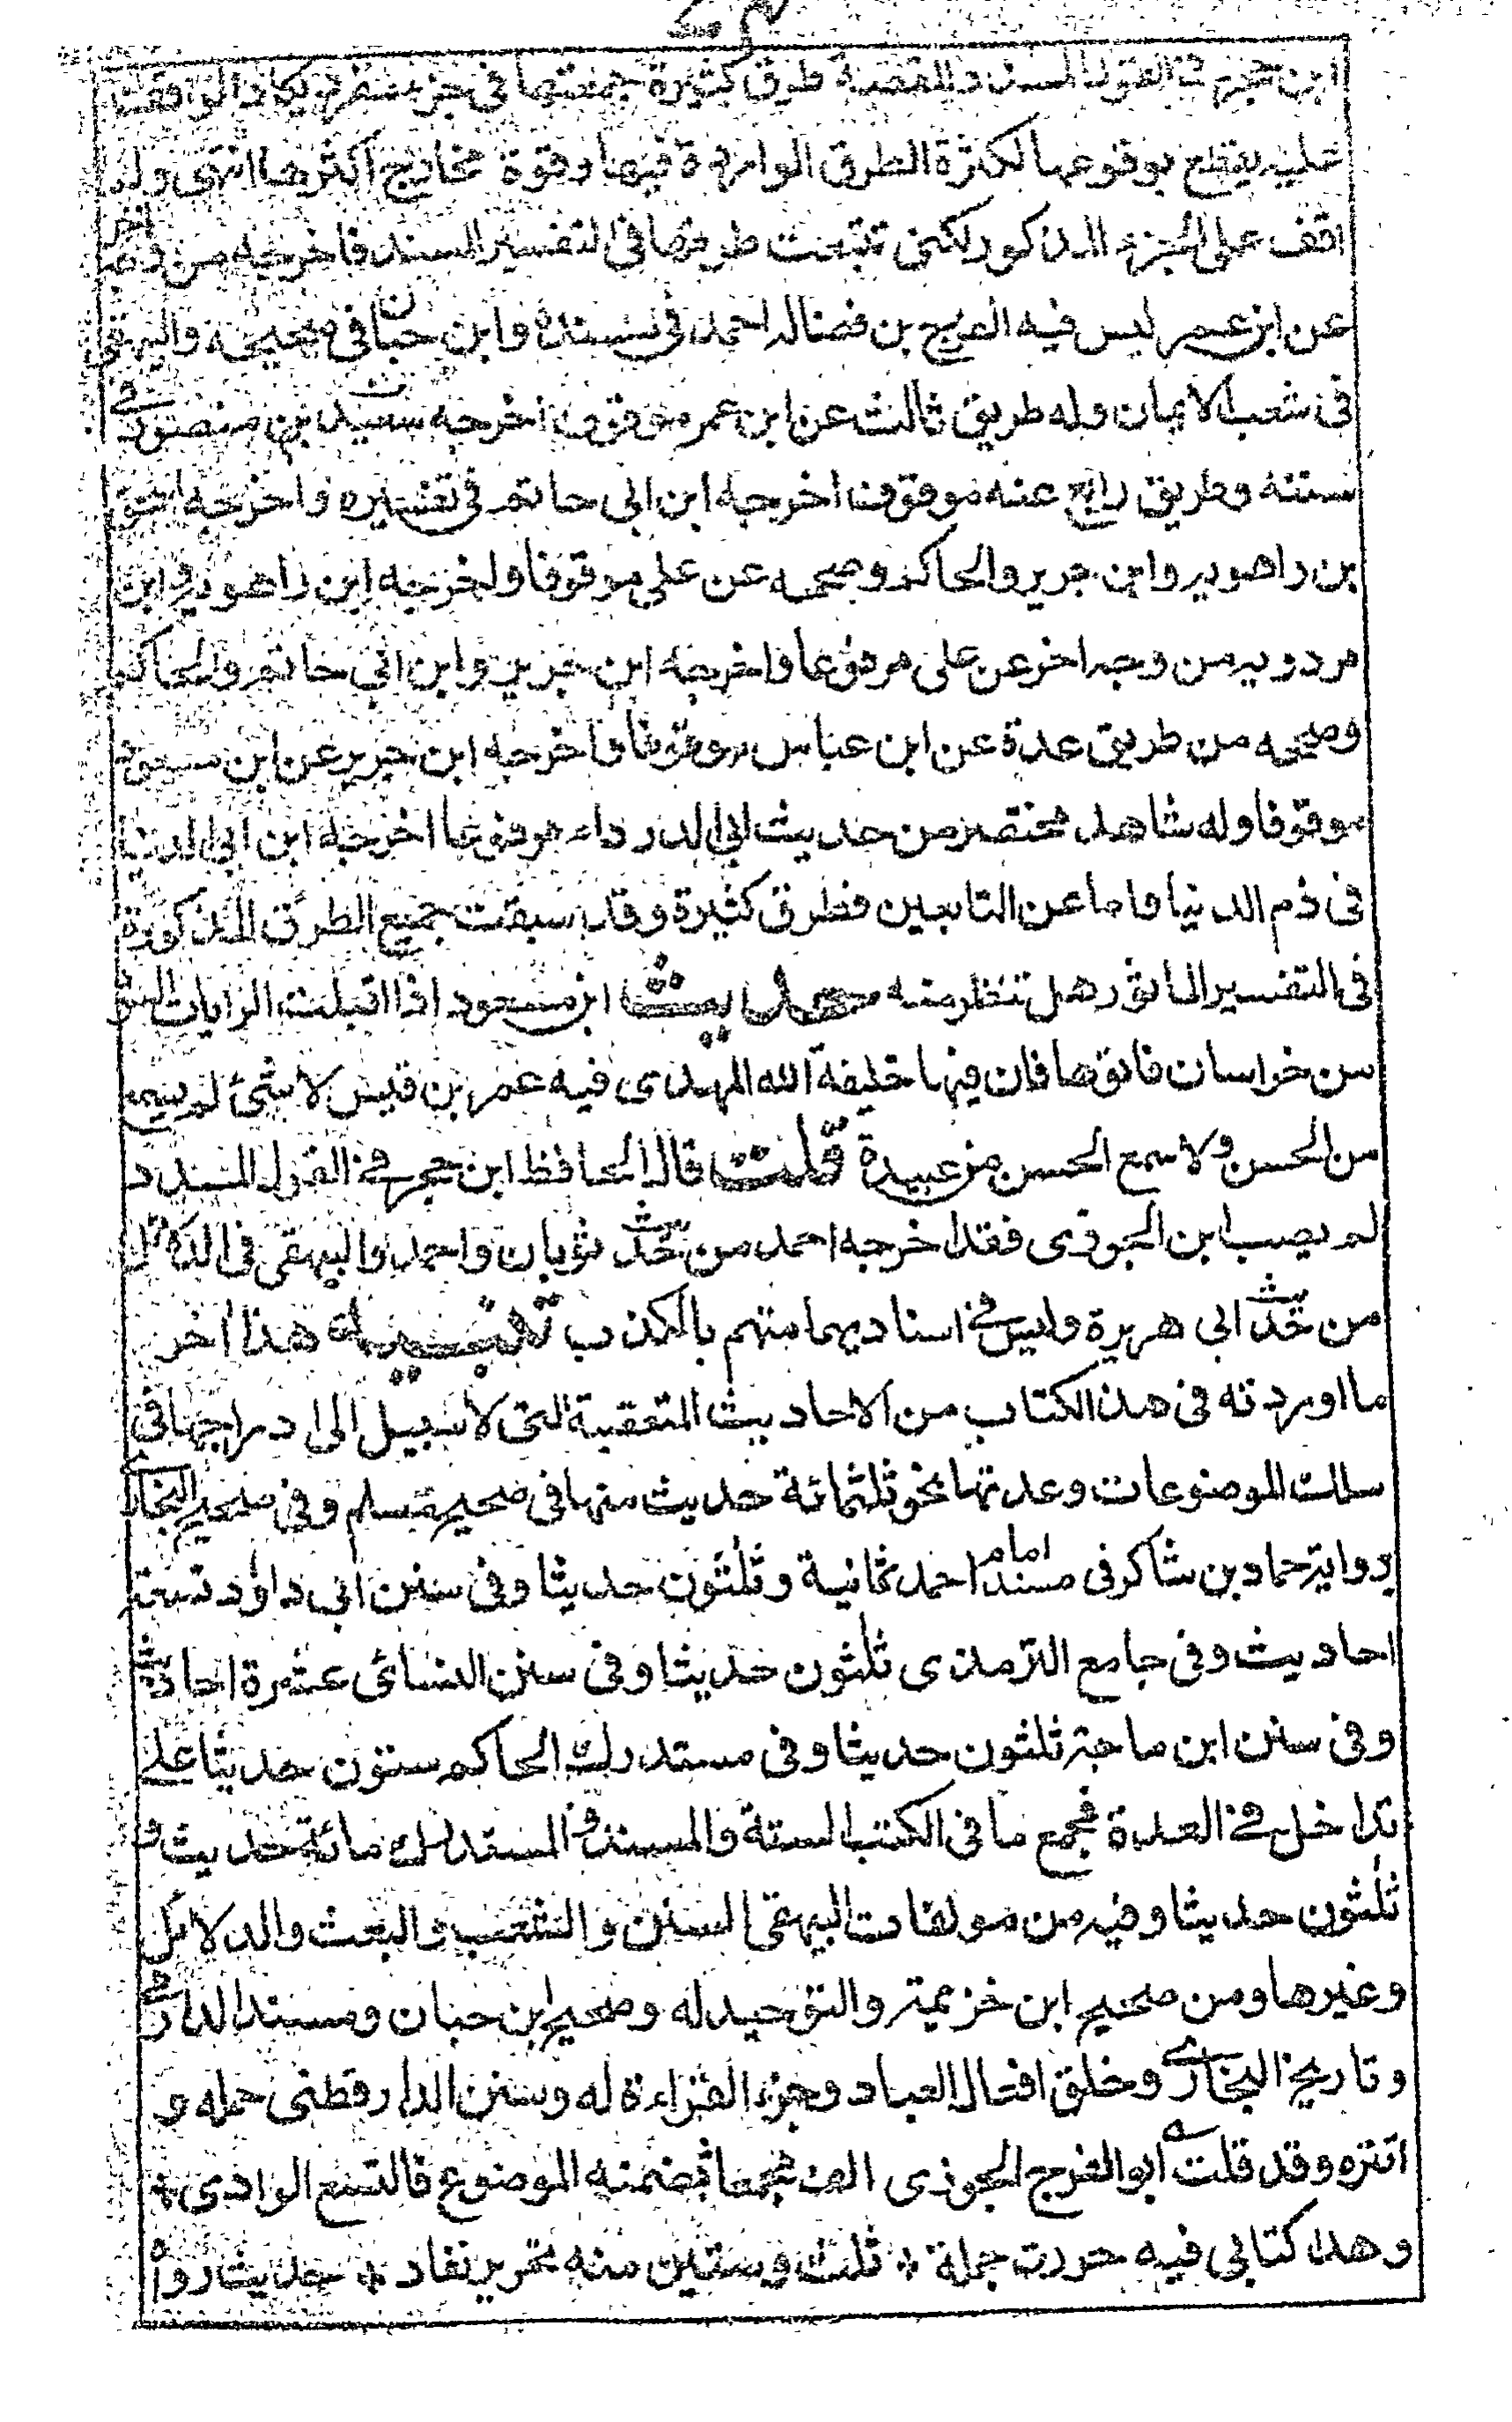 ابن حجر في القول المسدد وللقصة طرق كثيرة جمعتها في جزء مفرد يكاد الواقف
عليه يقطع بوقوعها لكثرة الطرق الواردة فيها وقوة مخارج اكثرها انتهى ولم
اقف على الجزء المذكور لكنى تتبعت طرقها في التفسير المسند فاخرجه من وجه اخر
عن ابن عمر ليس فيه الفرج بن فضالة احمد في مسنده وابن حبان في صحيحه والبيهقي
في شعب الايمان وله طريق ثالث عن ابن عمر موقوف اخرجه سعيد بن منصور في
سننه وطريق رابع عنه موقوف اخرجه ابن ابى حاتم في تفسيره واخرجه اسحق
بن راهويه وابن جرير والحاكم وصححه عن على موقوفا واخرجه ابن راهويه وابن
مردويه من وجه اخر عن على مرفوعا واخرجه ابن جرير وابن ابى حاتم والحاكم
وصححه من طريق عدة عن ابن عباس موقوفا واخرجه ابن جرير عن ابن مسعود
موقوفا وله شاهد مختصر من حديث ابى الدرداء مرفوعا اخرجه ابن ابى الدنيا
فى ذم الدنيا واما عن التابعين فطرق كثيرة وقد سبقت جميع الطرق المذكورة
فى التفسير الماثور هل تنظر منه حديث ابن مسعود اذا اقبلت الرايات السود
من خراسان فاتوها فان فيها خليفة الله المهدى فيه عمر بن قيس لا شئ لم يسمع
من الحسن ولا سمع الحسن من عبيدة قلت قال الحافظ ابن حجر في القول المسدد
لم يصب ابن الجوزى فقد اخرجه احمد من حديث ثوبان واحمد والبيهقى فى الدلائل
من حديث ابى هريرة وليس في اسناديهما متهم بالكذب تنبيه هذا اخر
ما اوردته فى هذا الكتاب من الاحاديث المتعقبة التى لا سبيل الى ادراجها فى
سلك الموضوعات وعدتها نحو ثلثمائة حديث منها فى صحيح مسلم وفى صحيح البخارى
برواية حماد بن شاكر فى مسند امام احمد ثمانية وثلثون حديثا وفى سنن ابى داود تسعة
احاديث وفى جامع الترمذى ثلثون حديثا وفى سنن النسائى عشرة احاديث
وفى سنن ابن ماجة ثلثون حديثا وفى مستدرك الحاكم ستون حديثا على
تداخل في العدة فجمع ما فى الكتب الستة والمسند والمستدرك مائة حديث و
ثلثون حديثا وفيه من مولفات البيهقى السنن والشعب والبعث والدلائل
وغيرها ومن صحيح ابن خزيمة والتوحيد له وصحيح ابن حبان ومسند الدارمى
وتاريخ البخارى وخلق افعال العباد وجزء القراءة له وسنن الدارقطنى جمله و
اتنزه وقد قلت ابو الفرج الجوزى الف مجمعا تضمنه الموضوع فالتسع الوادى *
وهذا كتابى فيه حررت جملة * ثلث وستين منه تحرير نقاد * حديثا رواه